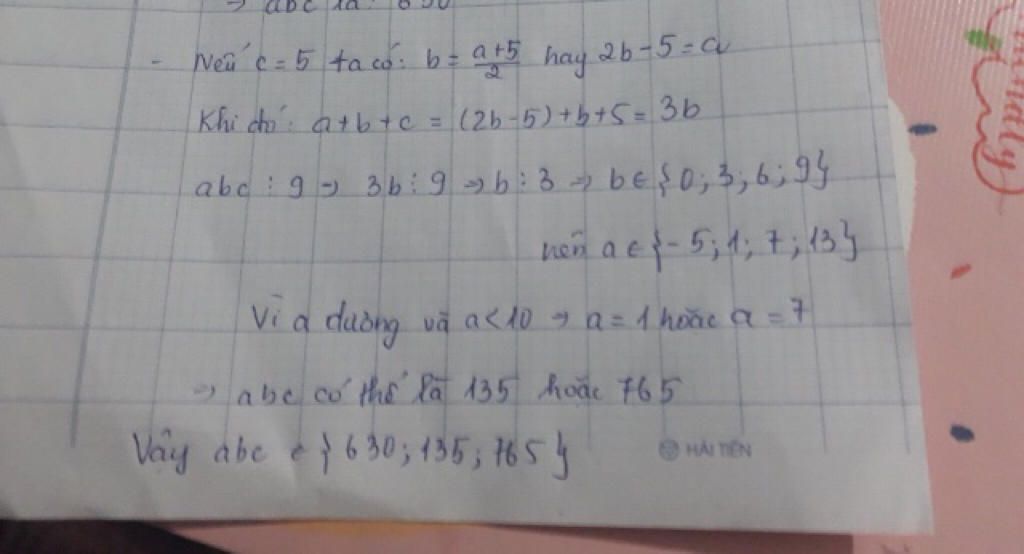 → abc là: 630
- Nếu c = 5 ta có: b = \frac{a+5}{2} hay 2b - 5 = a
Khi đó: a + b + c = (2b - 5) + b + 5 = 3b
abc ⋮ 9 → 3b ⋮ 9 → b ⋮ 3 → b ∈ {0; 3; 6; 9}
nên a ∈ {-5; 1; 7; 13}
Vì a dương và a < 10 → a = 1 hoặc a = 7
→ abc có thể là 135 hoặc 765
Vậy abc ∈ {630; 135; 765}
HẢI TIẾN